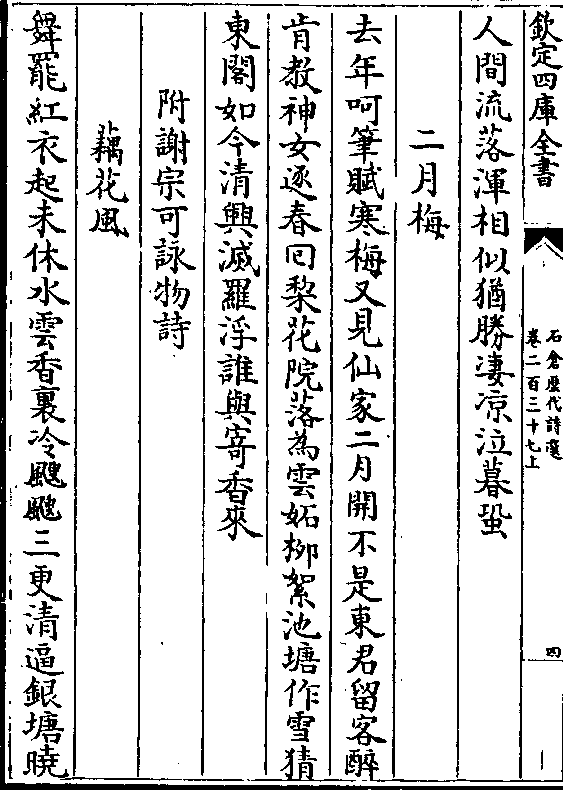 欽定四庫全書
石倉歷代詩選
卷二百三十七上
四
人間流落渾相似猶勝淒凉泣暮蛩
二月梅
去年呵筆賦寒梅又見仙家二月開不是東君留客醉
肯教神女逐春回梨花院落為雲妬栁絮池塘作雪猜
東閣如今清興減羅浮誰與寄香來
附謝宗可詠物詩
藕花風
舞罷紅衣起未休水雲香裏冷颼颼三更清逼銀塘曉